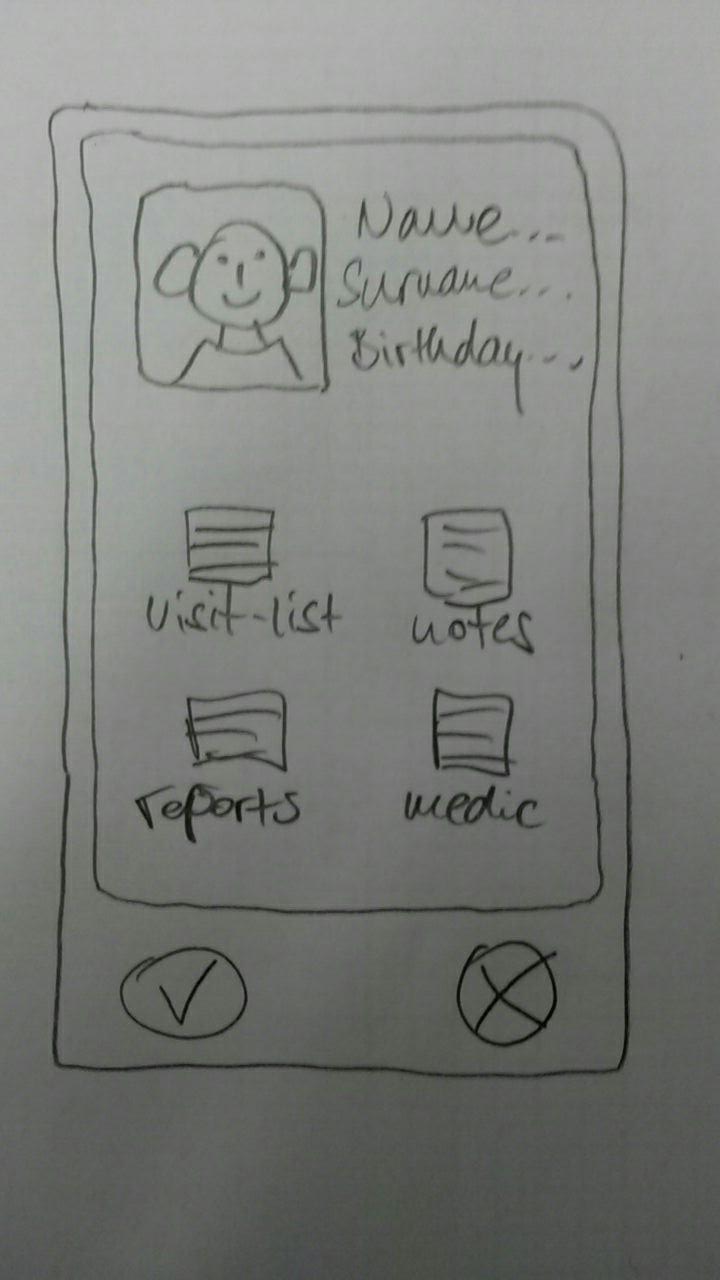 Name...
Surname...
Birthday...
visit-list
notes
reports
medic